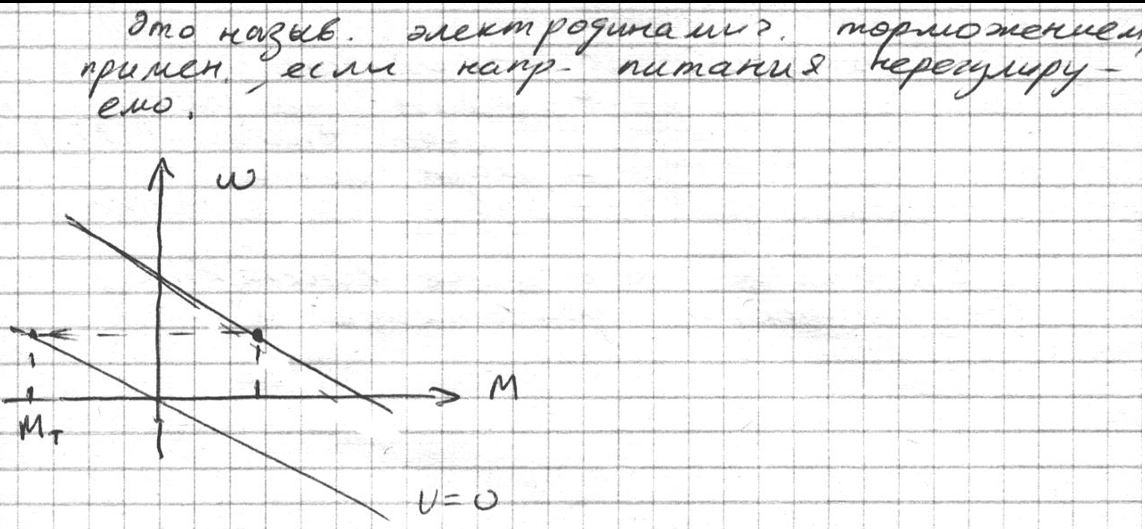 Это назыв. электродинамич. торможением,
примен., если напр. питания нерегулиру-
емо.
ω
M
Mт
U=0